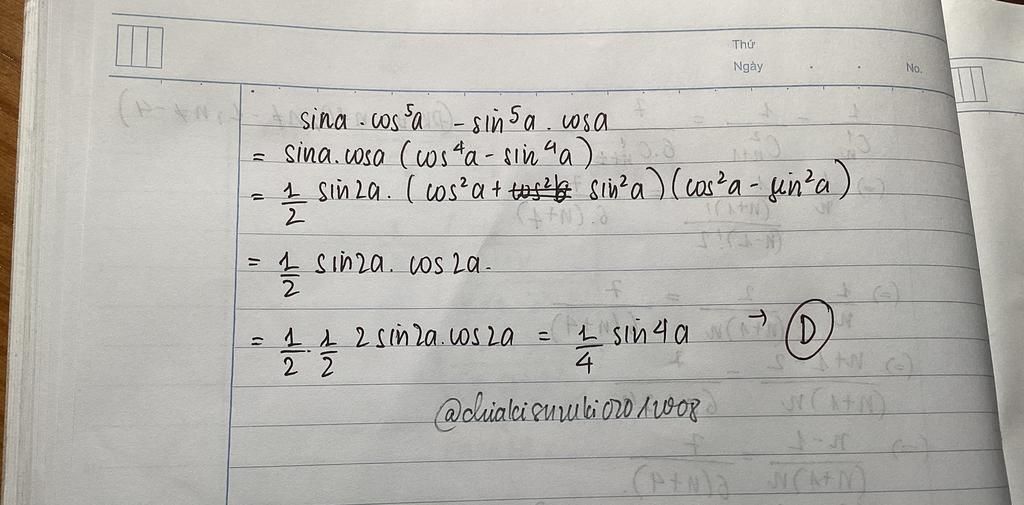 Thứ
Ngày . . No.
sina . cos⁵a - sin⁵a . cosa
= sina . cosa (cos⁴a - sin⁴a)
= 1/2 sin2a . (cos²a + sin²a)(cos²a - sin²a)
= 1/2 sin2a . cos2a .
= 1/2 . 1/2 2 sin2a . cos2a = 1/4 sin4a → D